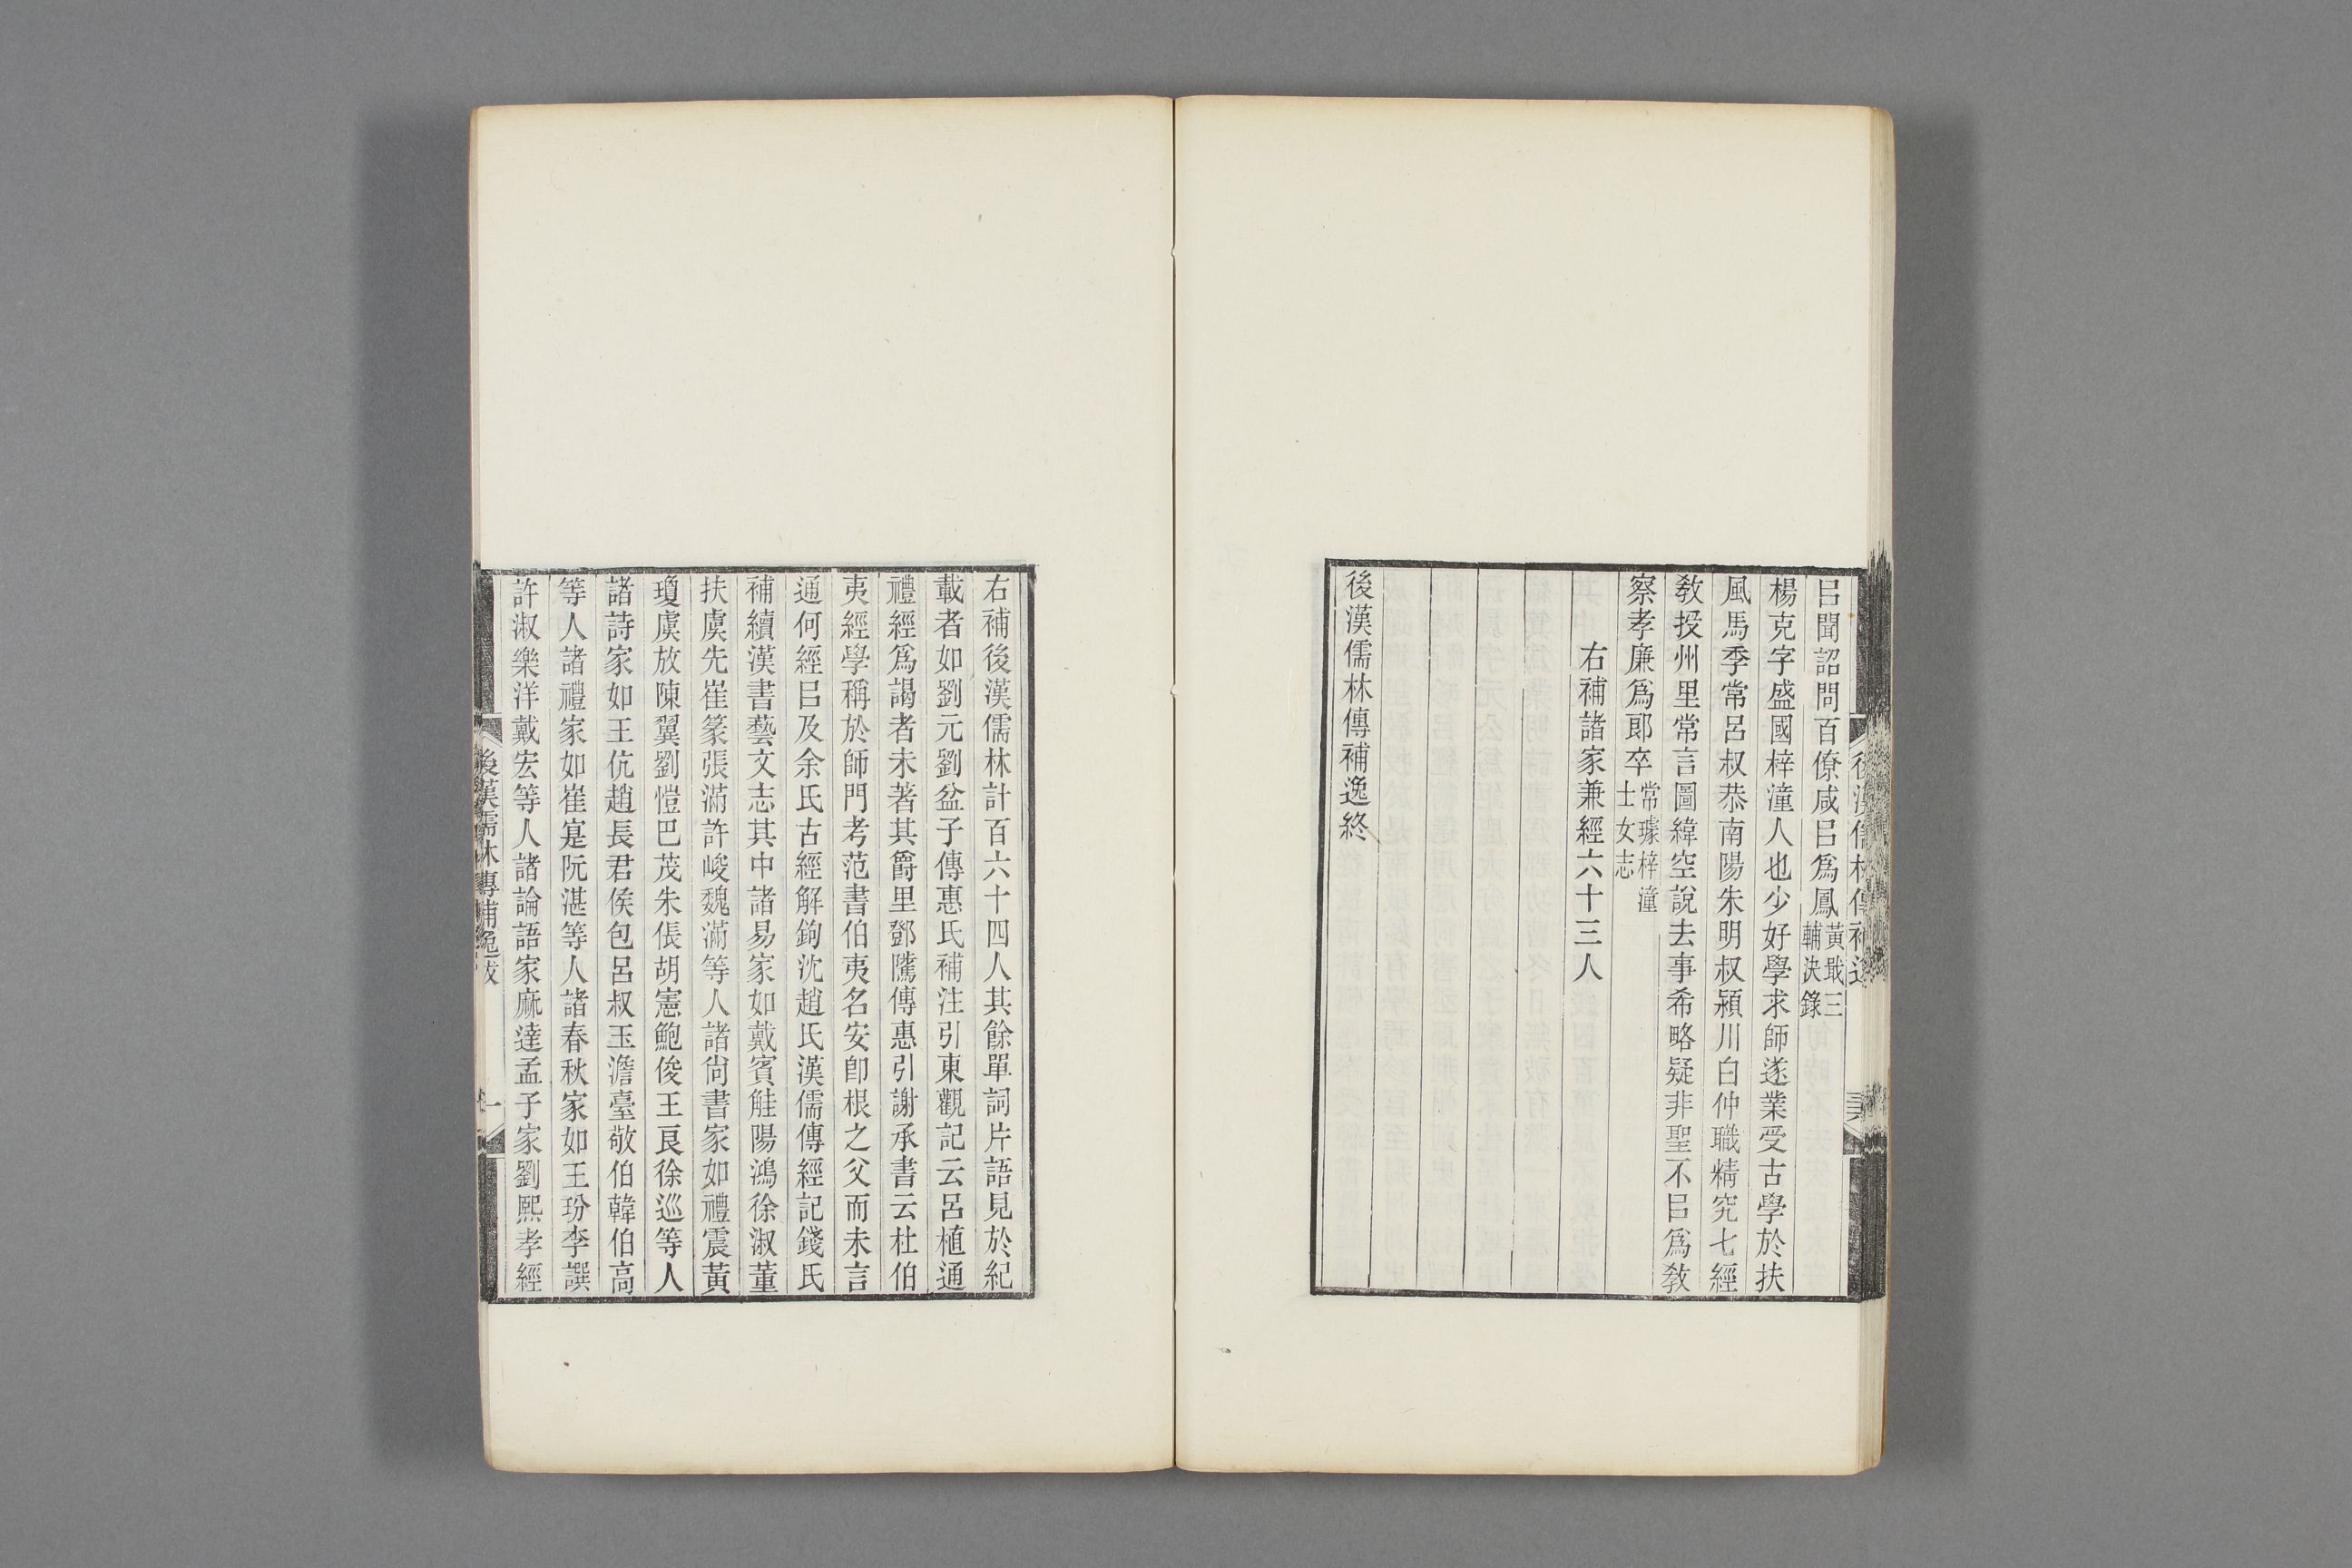 㠯聞詔問百僚咸㠯爲鳳黃戢三輔決錄
楊克字盛國梓潼人也少好學求師遂業受古學於扶
風馬季常呂叔恭南陽朱明叔潁川白仲職精究七經
教授州里常言圖緯空說去事希略疑非聖不㠯爲教
察孝廉爲郎卒常璩梓潼士女志
右補諸家兼經六十三人
後漢儒林傳補逸終
右補後漢儒林計百六十四人其餘單詞片語見於紀
載者如劉元劉盆子傳惠氏補注引東觀記云呂植通
禮經爲謁者未著其爵里鄧騭傳惠引謝承書云杜伯
夷經學稱於師門考范書伯夷名安卽根之父而未言
通何經㠯及余氏古經解鉤沈趙氏漢儒傳經記錢氏
補續漢書藝文志其中諸易家如戴賓觟陽鴻徐淑董
扶虞先崔篆張滿許峻魏滿等人諸尙書家如禮震黃
瓊虞放陳翼劉愷巴茂朱倀胡憲鮑俊王良徐巡等人
諸詩家如王伉趙長君侯包呂叔玉澹臺敬伯韓伯高
等人諸禮家如崔寔阮湛等人諸春秋家如王玢李譔
許淑樂洋戴宏等人諸論語家麻達孟子家劉熙孝經
後漢儒林傳補逸跋 一